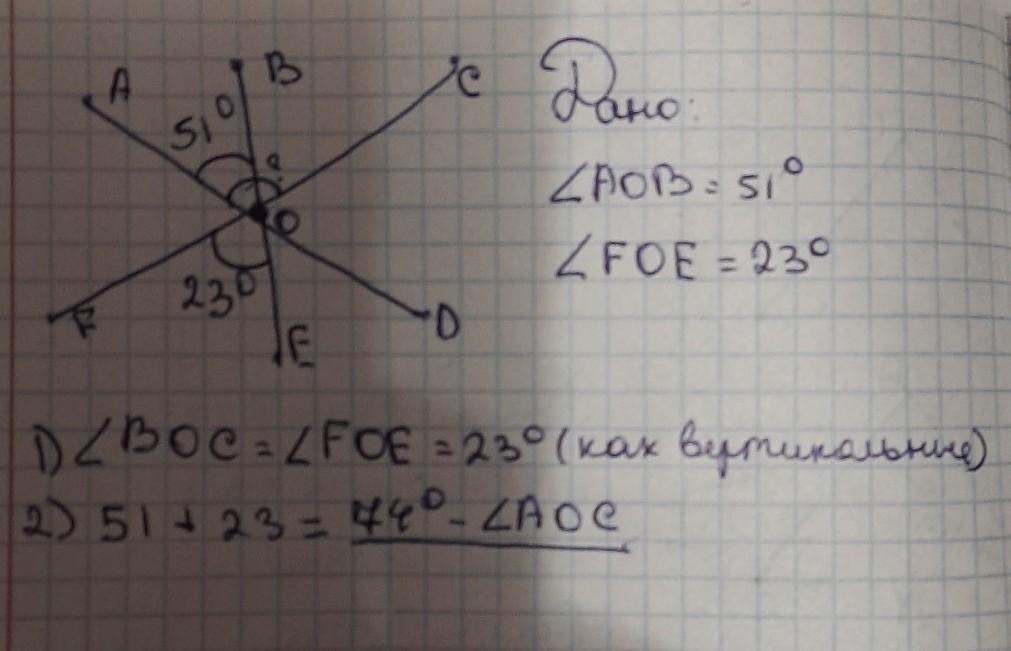 A
B
C
51°
?
O
23°
F
D
E
Дано:
∠AOB = 51°
∠FOE = 23°
1) ∠BOC = ∠FOE = 23° (как вертикальные)
2) 51 + 23 = 74° - ∠AOC